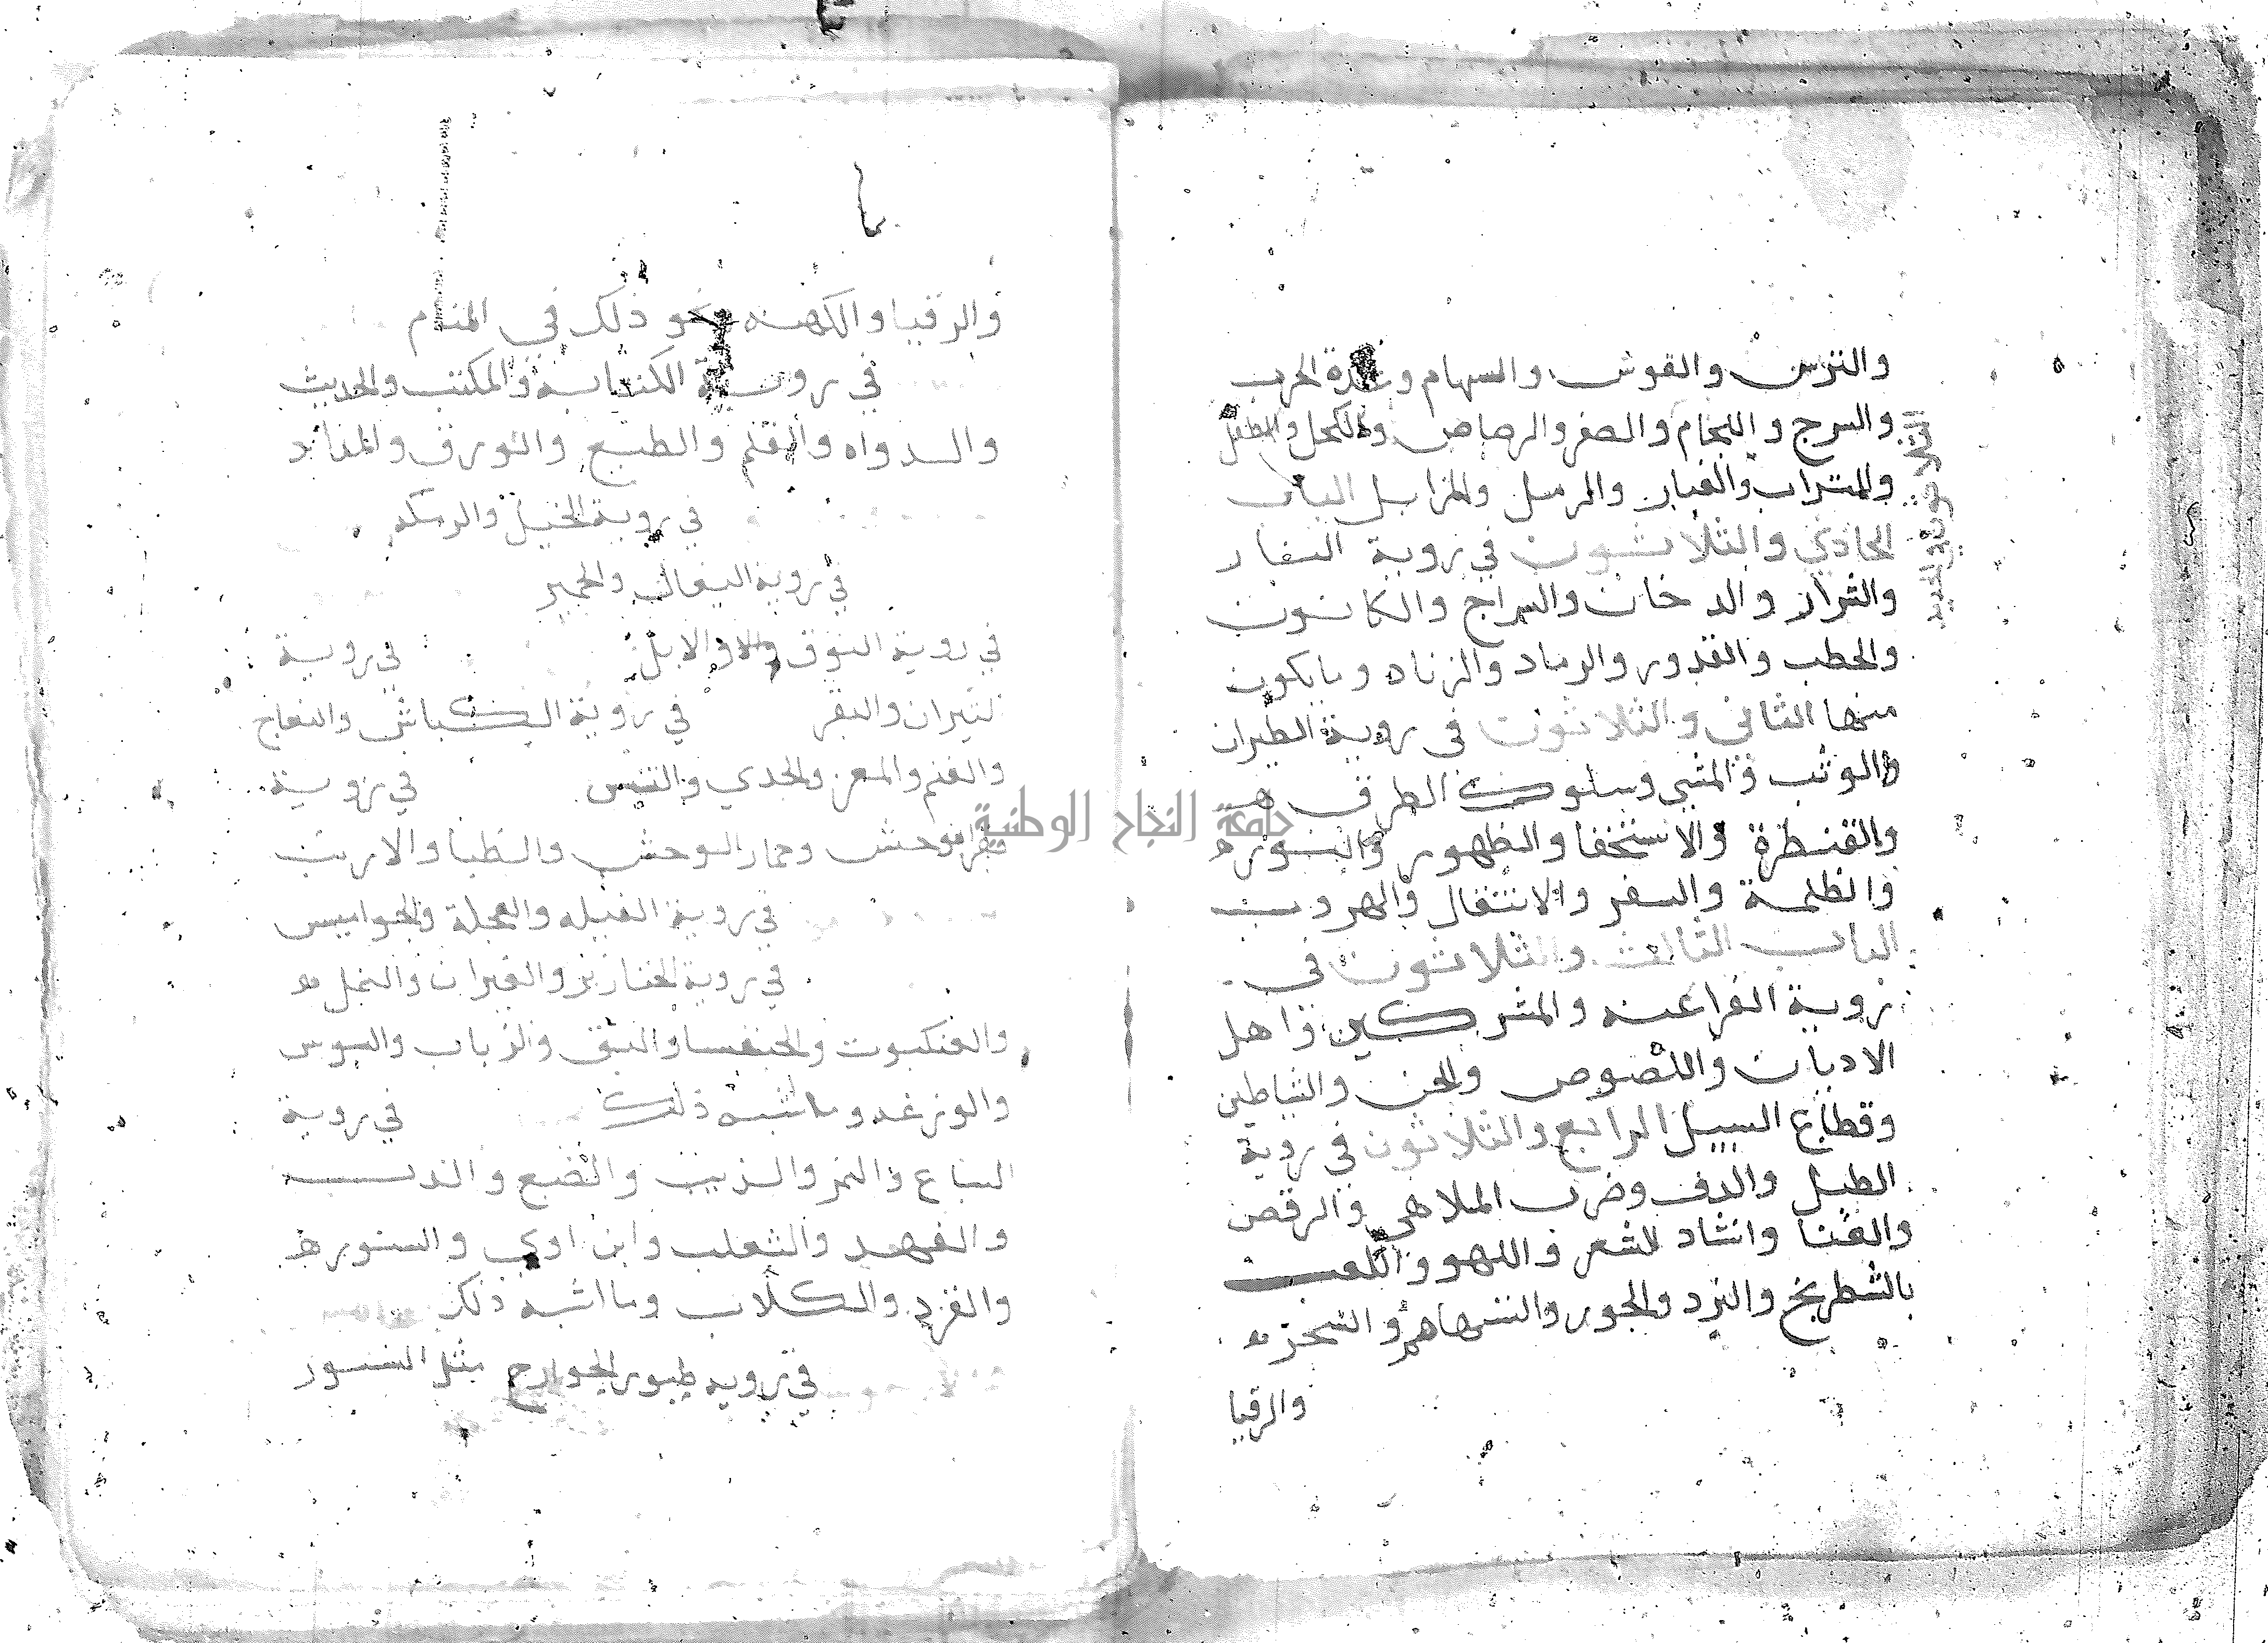 والترس والقوس والسهام وعدة الحرب
والسرج واللجام والصفر والرصاص والكحل والطفل
والتراب والغبار والرمل والمزابل الباب
الحادي والثلاثون في روية النار
والشرار والدخان والسراج والكانون
والحطب والقدور والرماد والزناد وما يكون
منها الثاني والثلاثون في روية الطيران
والوثب والمشي وسلوك الطرق
والقنطرة والاستخفا والظهور والنور
والظلمة والسفر والانتقال والهروب
الباب الثالث والثلاثون في
روية الفراعنه والمشركين واهل
الاديان واللصوص والجن والشياطين
وقطاع السبيل الرابع والثلاثون في روية
الطبل والدف وضرب الملاهي والرقص
والغنا وانشاد الشعر واللهو واللعب
بالشطرنج والنرد والجور والسحر
والرقيا
والرقيا والكهنه ونحو ذلك في المنام
في روية الكتابة والمكتب والحديث
والدواه والقلم والطبع والورق والمقايد
في روية الخيل والرمكه
في روية البغال والحمير
في روية النوق والابل في روية
التيران والبقر في روية الكباش والنعاج
والغنم والمعز والجدي والتيس في روية
بقر الوحش وحمار الوحش والظبا والارنب
في روية الفيله والعجلة والجواميس
في روية الخنازير والفيران والنمل
والعنكبوت والخنفسا والبق والذباب والسوس
والوزغه وما اشبه ذلك في روية
السباع والنمر والذيب والضبع والدب
والفهد والثعلب وابن اوي والسنور
والقرد والكلاب وما اشبه ذلك
في رويه طيور الجوارح مثل النسور
جامعة النجاح الوطنية